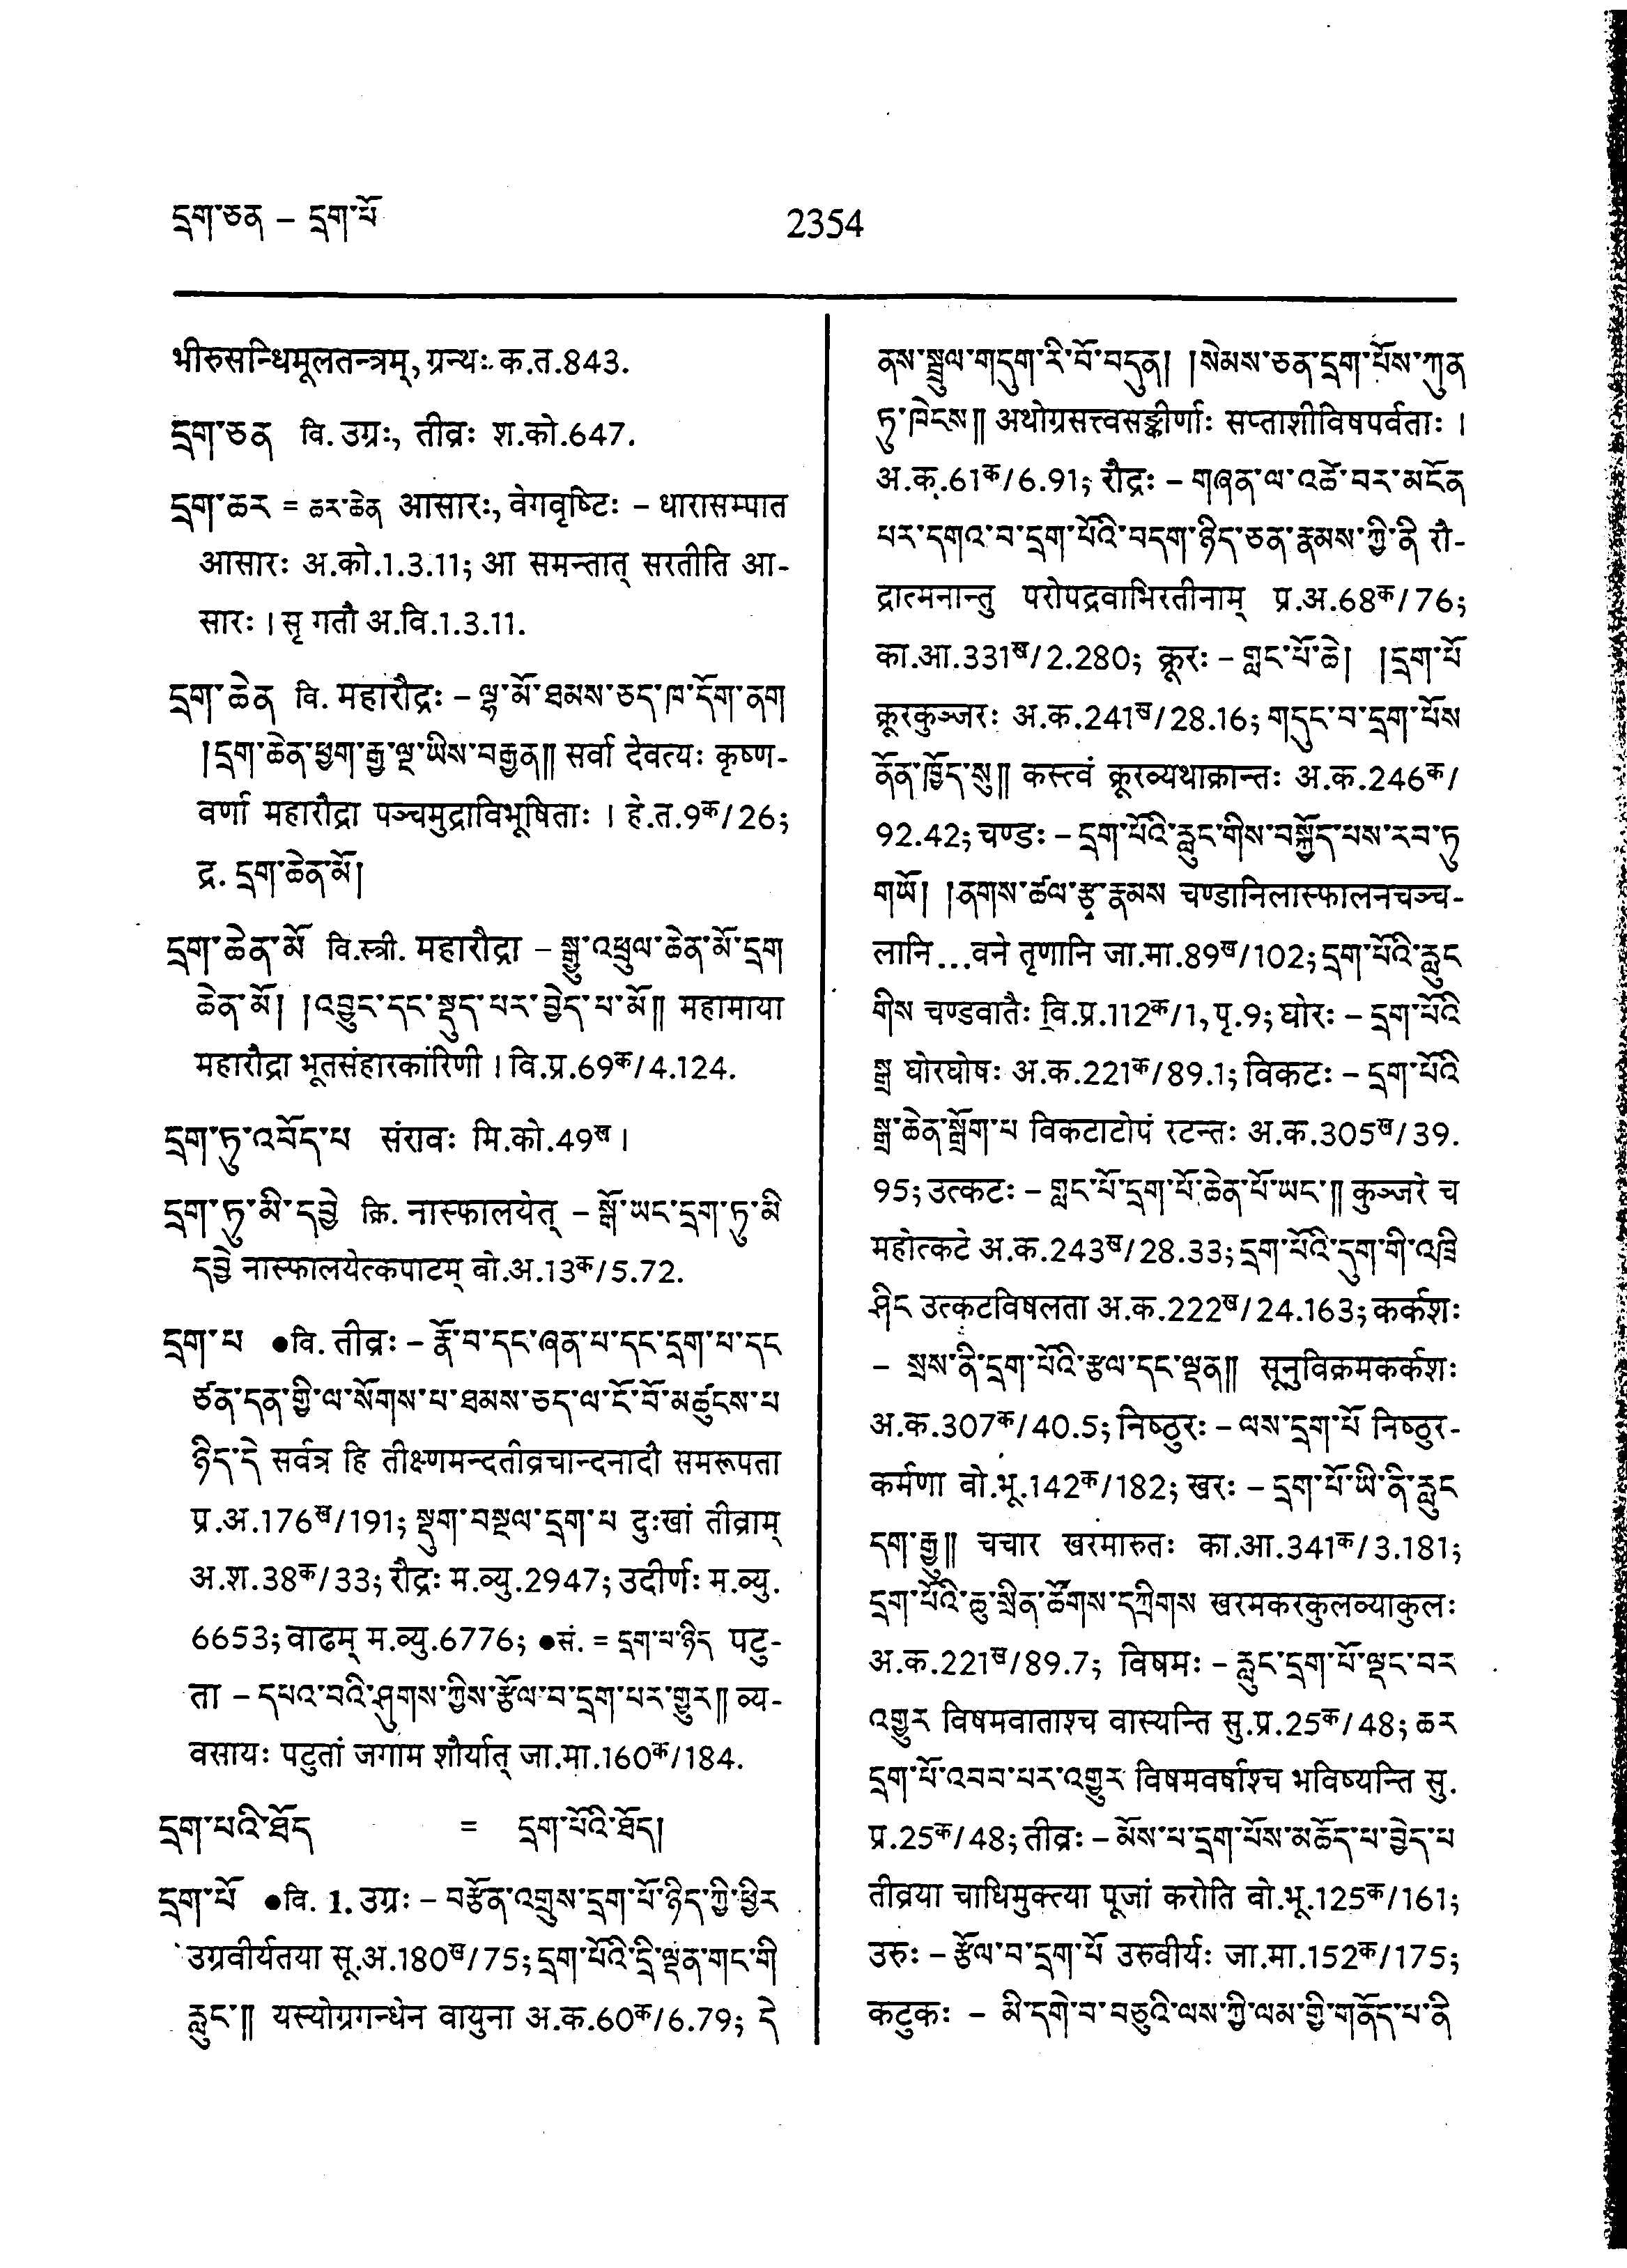 དྲག་ཅན – དྲག་པོ
2354
भीरुसन्धिमूलतन्त्रम्, ग्रन्थः क.त.843.
དྲག་ཅན वि. उग्रः, तीव्रः श.को.647.
དྲག་ཆར = ཆར་ཆེན आसारः, वेगवृष्टिः – धारासम्पात
आसारः अ.को.1.3.11; आ समन्तात् सरतीति आ-
सारः । सृ गतौ अ.वि.1.3.11.
དྲག་ཆེན वि. महारौद्रः – ལྷ་མོ་ཐམས་ཅད་ཁ་དོག་ནག
།དྲག་ཆེན་ཕྱག་རྒྱ་ལྔ་ཡིས་བརྒྱན༎ सर्वा देवत्यः कृष्ण-
वर्णा महारौद्रा पञ्चमुद्राविभूषिताः । हे.त.9क/26;
द्र. དྲག་ཆེན་མོ།
དྲག་ཆེན་མོ वि.स्त्री. महारौद्रा – སྒྱུ་འཕྲུལ་ཆེན་མོ་དྲག
ཆེན་མོ། །འབྱུང་དང་སྡུད་པར་བྱེད་པ་མོ༎ महामाया
महारौद्रा भूतसंहारकारिणी । वि.प्र.69क/4.124.
དྲག་ཏུ་འབོད་པ संरावः मि.को.49ख ।
དྲག་ཏུ་མི་དབྱེ क्रि. नास्फालयेत् – སྒོ་ཡང་དྲག་ཏུ་མི
དབྱེ नास्फालयेत्कपाटम् बो.अ.13क/5.72.
དྲག་པ ●वि. तीव्रः – རྣོ་བ་དང་ཞན་པ་དང་དྲག་པ་དང
ཙན་དན་གྱི་ལ་སོགས་པ་ཐམས་ཅད་ལ་ངོ་བོ་མཚུངས་པ
ཉིད་དེ सर्वत्र हि तीक्ष्णमन्दतीव्रचान्दनादौ समरूपता
प्र.अ.176ख/191; སྡུག་བསྔལ་དྲག་པ दुःखां तीव्राम्
अ.श.38क/33; रौद्रः म.व्यु.2947; उदीर्णः म.व्यु.
6653; वाढम् म.व्यु.6776; ●सं. = དྲག་པ་ཉིད पटु-
ता – དཔའ་བའི་ཤུགས་ཀྱིས་རྩོལ་བ་དྲག་པར་གྱུར༎ व्य-
वसायः पटुतां जगाम शौर्यात् जा.मा.160क/184.
དྲག་པའི་ཐོད = དྲག་པོའི་ཐོད།
དྲག་པོ ●वि. 1. उग्रः – བརྩོན་འགྲུས་དྲག་པོ་ཉིད་ཀྱི་ཕྱིར
उग्रवीर्यतया सू.अ.180ख/75; དྲག་པོའི་དྲི་ལྡན་གང་གི
རླུང་༎ यस्योग्रगन्धेन वायुना अ.क.60क/6.79; དེ
ནས་སྦྲུལ་གདུག་རི་བོ་བདུན། །སེམས་ཅན་དྲག་པོས་ཀུན
ཏུ་ཁེངས༎ अथोग्रसत्त्वसङ्कीर्णाः सप्ताशीविषपर्वताः ।
अ.क.61क/6.91; रौद्रः – གཞན་ལ་འཚེ་བར་མངོན
པར་དགའ་བ་དྲག་པོའི་བདག་ཉིད་ཅན་རྣམས་ཀྱི་ནི रौ-
द्रात्मनान्तु परोपद्रवाभिरतीनाम् प्र.अ.68क/76;
का.आ.331ख/2.280; क्रूरः – གླང་པོ་ཆེ། །དྲག་པོ
क्रूरकुञ्जरः अ.क.241ख/28.16; གདུང་བ་དྲག་པོས
ནོན་ཁྱོད་སུ༎ कस्त्वं क्रूरव्यथाक्रान्तः अ.क.246क/
92.42; चण्डः – དྲག་པོའི་རླུང་གིས་བསྐྱོད་པས་རབ་ཏུ
གཡོ། །ནགས་ཚལ་རྩྭ་རྣམས चण्डानिलास्फालनचञ्च-
लानि...वने तृणानि जा.मा.89ख/102; དྲག་པོའི་རླུང
གིས चण्डवातैः वि.प्र.112क/1, पृ.9; घोरः – དྲག་པོའི
སྒྲ घोरघोषः अ.क.221क/89.1; विकटः – དྲག་པོའི
སྒྲ་ཆེན་སྒྲོག་པ विकटाटोपं रटन्तः अ.क.305ख/39.
95; उत्कटः – གླང་པོ་དྲག་པོ་ཆེན་པོ་ཡང་༎ कुञ्जरे च
महोत्कटे अ.क.243ख/28.33; དྲག་པོའི་དུག་གི་འཁྲི
ཤིང उत्कटविषलता अ.क.222ख/24.163; कर्कशः
– སྲས་ནི་དྲག་པོའི་རྩལ་དང་ལྡན༎ सूनुविक्रमकर्कशः
अ.क.307क/40.5; निष्ठुरः – ལས་དྲག་པོ निष्ठुर-
कर्मणा बो.भू.142क/182; खरः – དྲག་པོ་ཡི་ནི་རླུང
དག་རྒྱུ༎ चचार खरमारुतः का.आ.341क/3.181;
དྲག་པོའི་ཆུ་སྲིན་ཚོགས་དཀྲིགས खरमकरकुलव्याकुलः
अ.क.221ख/89.7; विषमः – རླུང་དྲག་པོ་ལྡང་བར
འགྱུར विषमवाताश्च वास्यन्ति सु.प्र.25क/48; ཆར
དྲག་པོ་འབབ་པར་འགྱུར विषमवर्षाश्च भविष्यन्ति सु.
प्र.25क/48; तीव्रः – མོས་པ་དྲག་པོས་མཆོད་པ་བྱེད་པ
तीव्रया चाधिमुक्त्या पूजां करोति बो.भू.125क/161;
उरुः – རྩོལ་བ་དྲག་པོ उरुवीर्यः जा.मा.152क/175;
कटुकः – མི་དགེ་བ་བཅུའི་ལས་ཀྱི་ལམ་གྱི་གནོད་པ་ནི